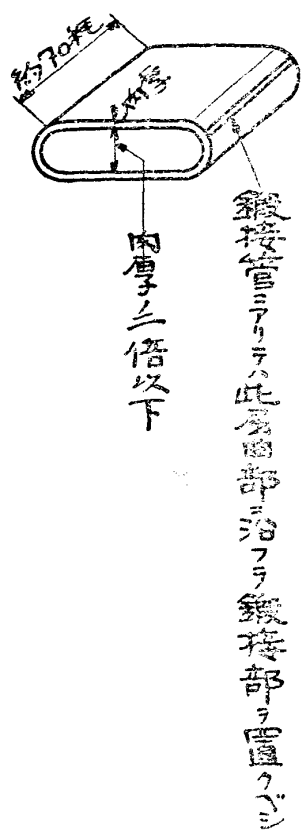 約70粍
内径
肉厚ノ二倍以下
鍛接管ニアリテハ此屈曲部ニ沿フテ鍛接部ヲ置クベシ